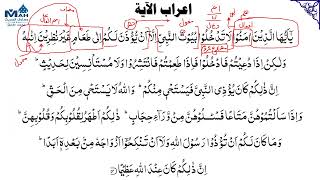 اعراب الآية
يٰٓاَيُّهَا الَّذِيْنَ اٰمَنُوْا لَا تَدْخُلُوْا بُيُوْتَ النَّبِيِّ اِلَّآ اَنْ يُّؤْذَنَ لَكُمْ اِلٰى طَعَامٍ غَيْرَ نٰظِرِيْنَ اِنٰىهُ
وَلٰكِنْ اِذَا دُعِيْتُمْ فَادْخُلُوْا فَاِذَا طَعِمْتُمْ فَانْتَشِرُوْا وَلَا مُسْتَاْنِسِيْنَ لِحَدِيْثٍ
اِنَّ ذٰلِكُمْ كَانَ يُؤْذِى النَّبِيَّ فَيَسْتَحْيٖ مِنْكُمْ وَاللّٰهُ لَا يَسْتَحْيٖ مِنَ الْحَقِّ
وَاِذَا سَاَلْتُمُوْهُنَّ مَتَاعًا فَسْـَٔلُوْهُنَّ مِنْ وَّرَآءِ حِجَابٍ ذٰلِكُمْ اَطْهَرُ لِقُلُوْبِكُمْ وَقُلُوْبِهِنَّ
وَمَا كَانَ لَكُمْ اَنْ تُؤْذُوْا رَسُوْلَ اللّٰهِ وَلَآ اَنْ تَنْكِحُوْٓا اَزْوَاجَهٗ مِنْۢ بَعْدِهٖٓ اَبَدًا
اِنَّ ذٰلِكُمْ كَانَ عِنْدَ اللّٰهِ عَظِيْمًا